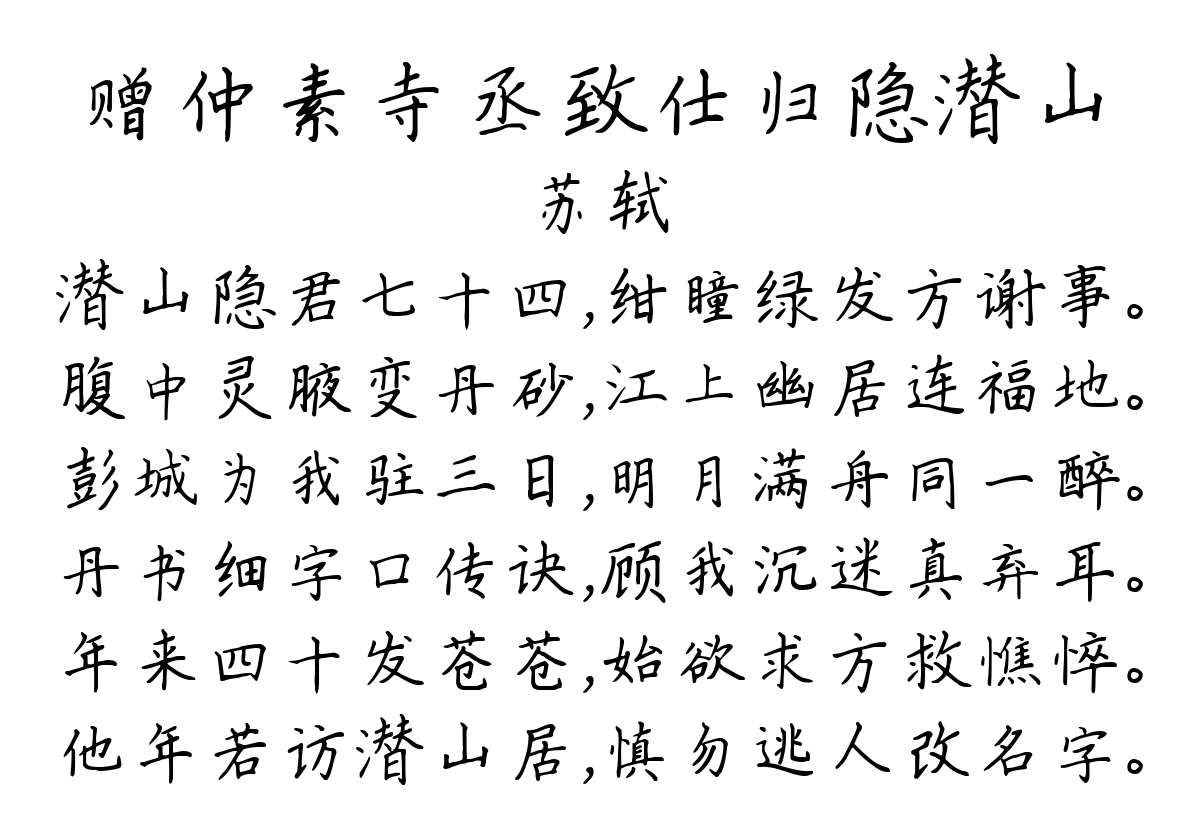 赠仲素寺丞致仕归隐潜山
苏轼
潜山隐君七十四,绀瞳绿发方谢事。
腹中灵腋变丹砂,江上幽居连福地。
彭城为我驻三日,明月满舟同一醉。
丹书细字口传诀,顾我沉迷真弃耳。
年来四十发苍苍,始欲求方救憔悴。
他年若访潜山居,慎勿逃人改名字。